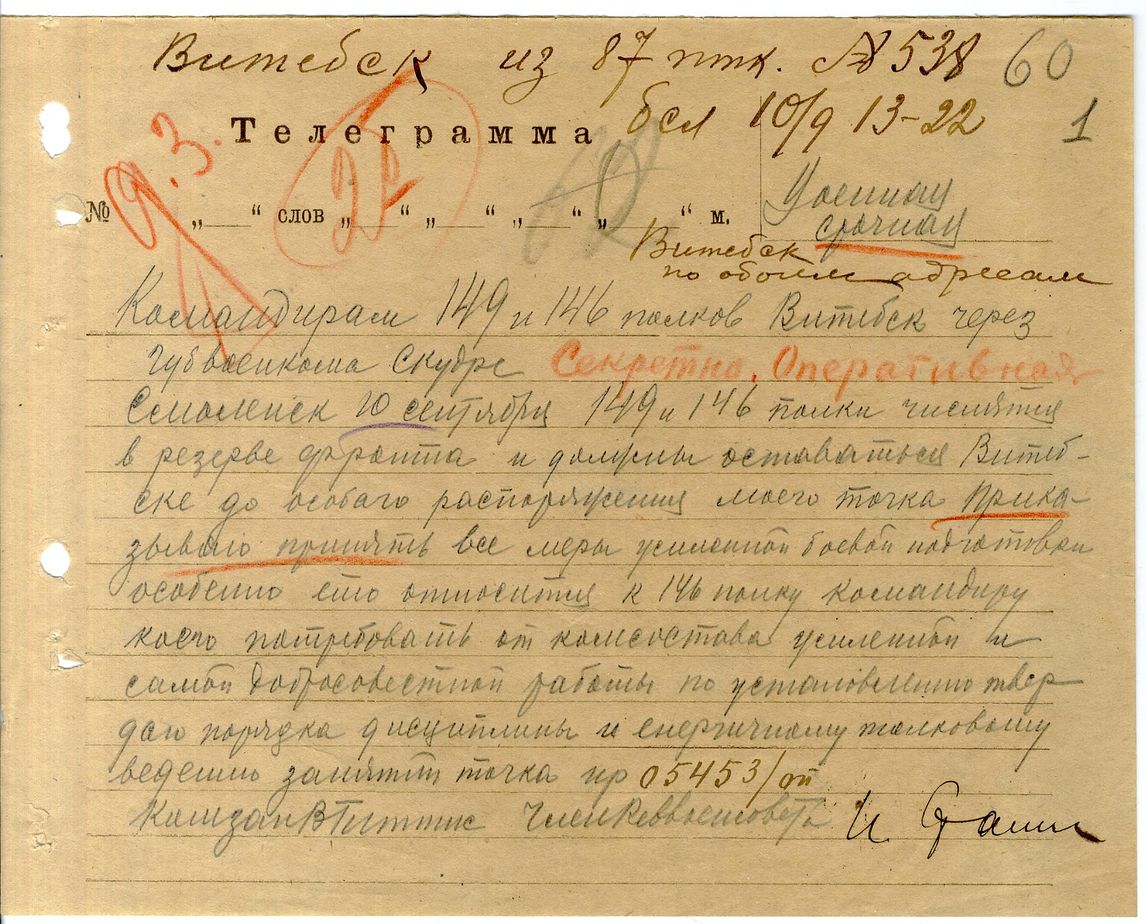 Витебск из 87 птк. № 538 60
Телеграмма бсл 10/9 13-22 1
№ „ “ слов „ “ „ “ „ “ „ “ м.
9.3.
Военная
срочная
Витебск
по обоим адресам
Командирам 149 и 146 полков Витебск через
губвоенкома Скудре Секретно. Оперативная
Смоленск 10 сентября 149 и 146 полки числятся
в резерве фронта и должны оставаться Витеб-
ске до особаго распоряжения моего точка Прика-
зываю принять все меры усиленной боевой подготовки
особенно ето относится к 146 полку командиру
коего потребовать от комсостава усиленной и
самой добросовестной работы по установлению твер
даго порядка дисциплины и енергичному толковому
ведению занятий точка нр 05453/оп
КомзапВГиттис ЧленРеввоенсовета И Сталин